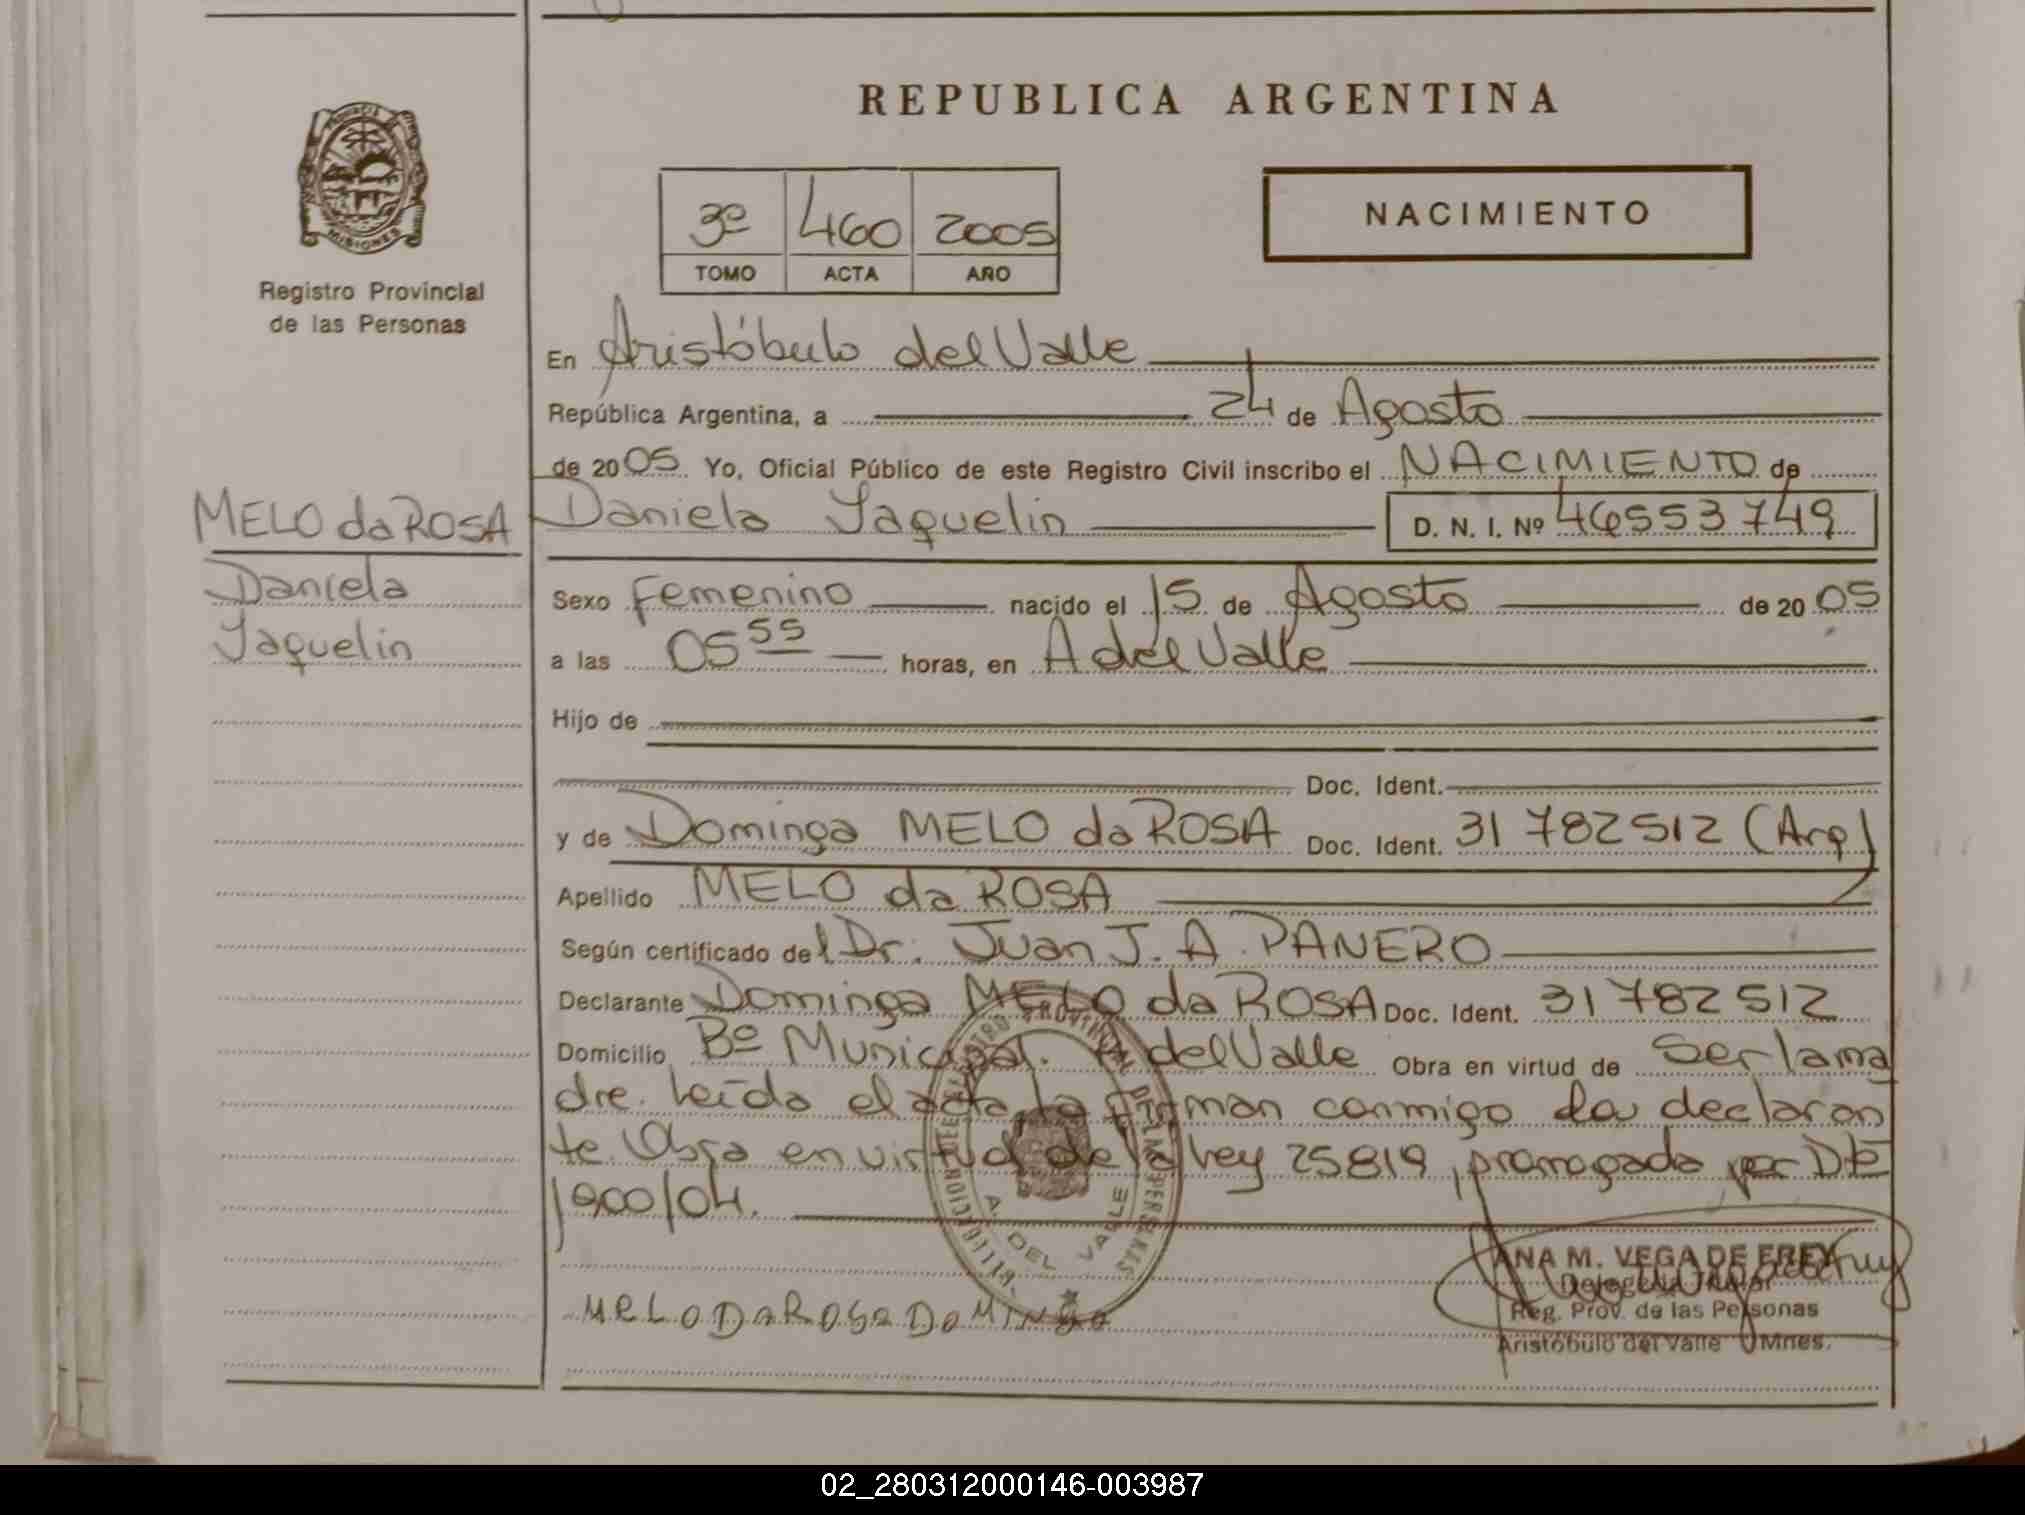 REPUBLICA ARGENTINA
PROVINCIA
MISIONES
Registro Provincial
de las Personas
3º 460 2005
TOMO ACTA AÑO
NACIMIENTO
En Aristóbulo del Valle
República Argentina, a 24 de Agosto
de 2005 Yo, Oficial Público de este Registro Civil inscribo el NACIMIENTO de
MELO da ROSA
Daniela
Yaquelin
Daniela Yaquelin D. N. I. Nº 46553749
Sexo Femenino nacido el 15 de Agosto de 2005
a las 05 55 horas, en A del Valle
Hijo de
Doc. Ident.
y de Dominga MELO da ROSA Doc. Ident. 31 782512 (Arg)
Apellido MELO da ROSA
Según certificado del Dr. Juan J. A. PANERO
Declarante Dominga MELO da ROSA Doc. Ident. 31 782 512
Domicilio Bº Municipal. A del Valle Obra en virtud de Ser la ma
dre. Leída el acta la firman conmigo la declaran
te. Obra en virtud de la Ley 25819, prorrogada por DTE
1900/04.
REGISTRO PROVINCIAL DE LAS PERSONAS
A. DEL VALLE
MELO DA ROSA DOMINGA
ANA M. VEGA DE FREY
Delegada Titular
Reg. Prov. de las Personas
Aristóbulo del Valle Mnes.
02_280312000146-003987